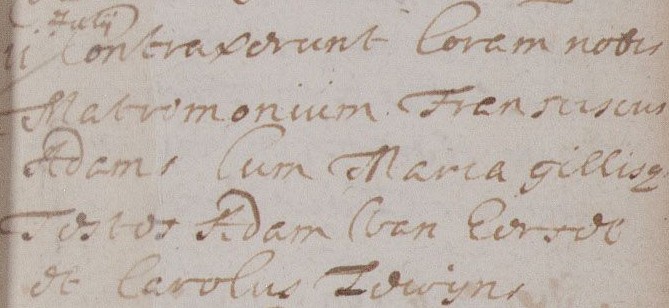 Julij
11 Contraxerunt Coram nobis
Matremonium Franciscus
Adams Cum Maria gillis
Testes Adam Van Eersde
et Carolus